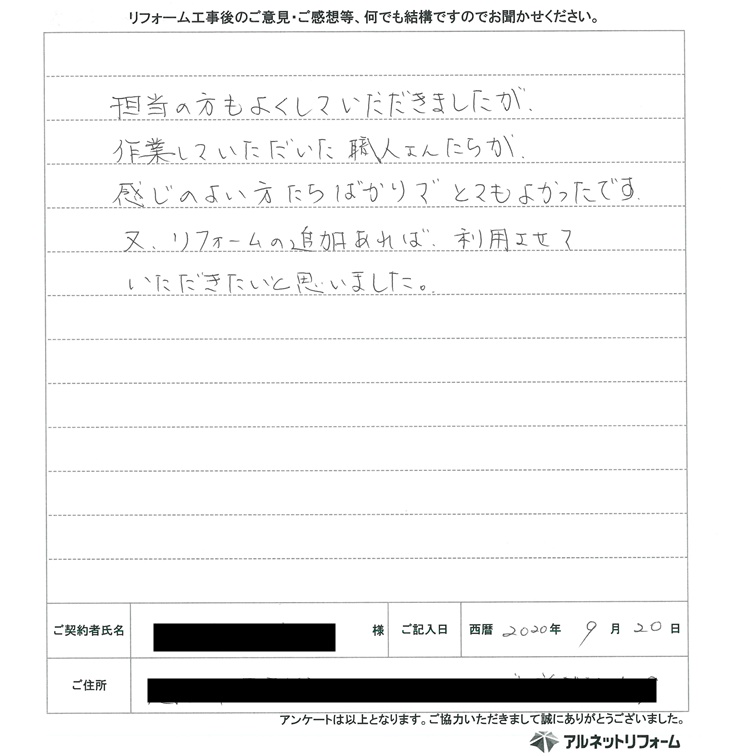 リフォーム工事後のご意見・ご感想等、何でも結構ですのでお聞かせください。
担当の方もよくしていただきましたが、
作業していただいた職人さんたちが、
感じのよい方たちばかりで とてもよかったです。
又、リフォームの追加あれば、利用させて
いただきたいと思いました。
ご契約者氏名 様 ご記入日 西暦 2020年 9月 20日
ご住所
アンケートは以上となります。ご協力いただきまして誠にありがとうございました。
アルネットリフォーム